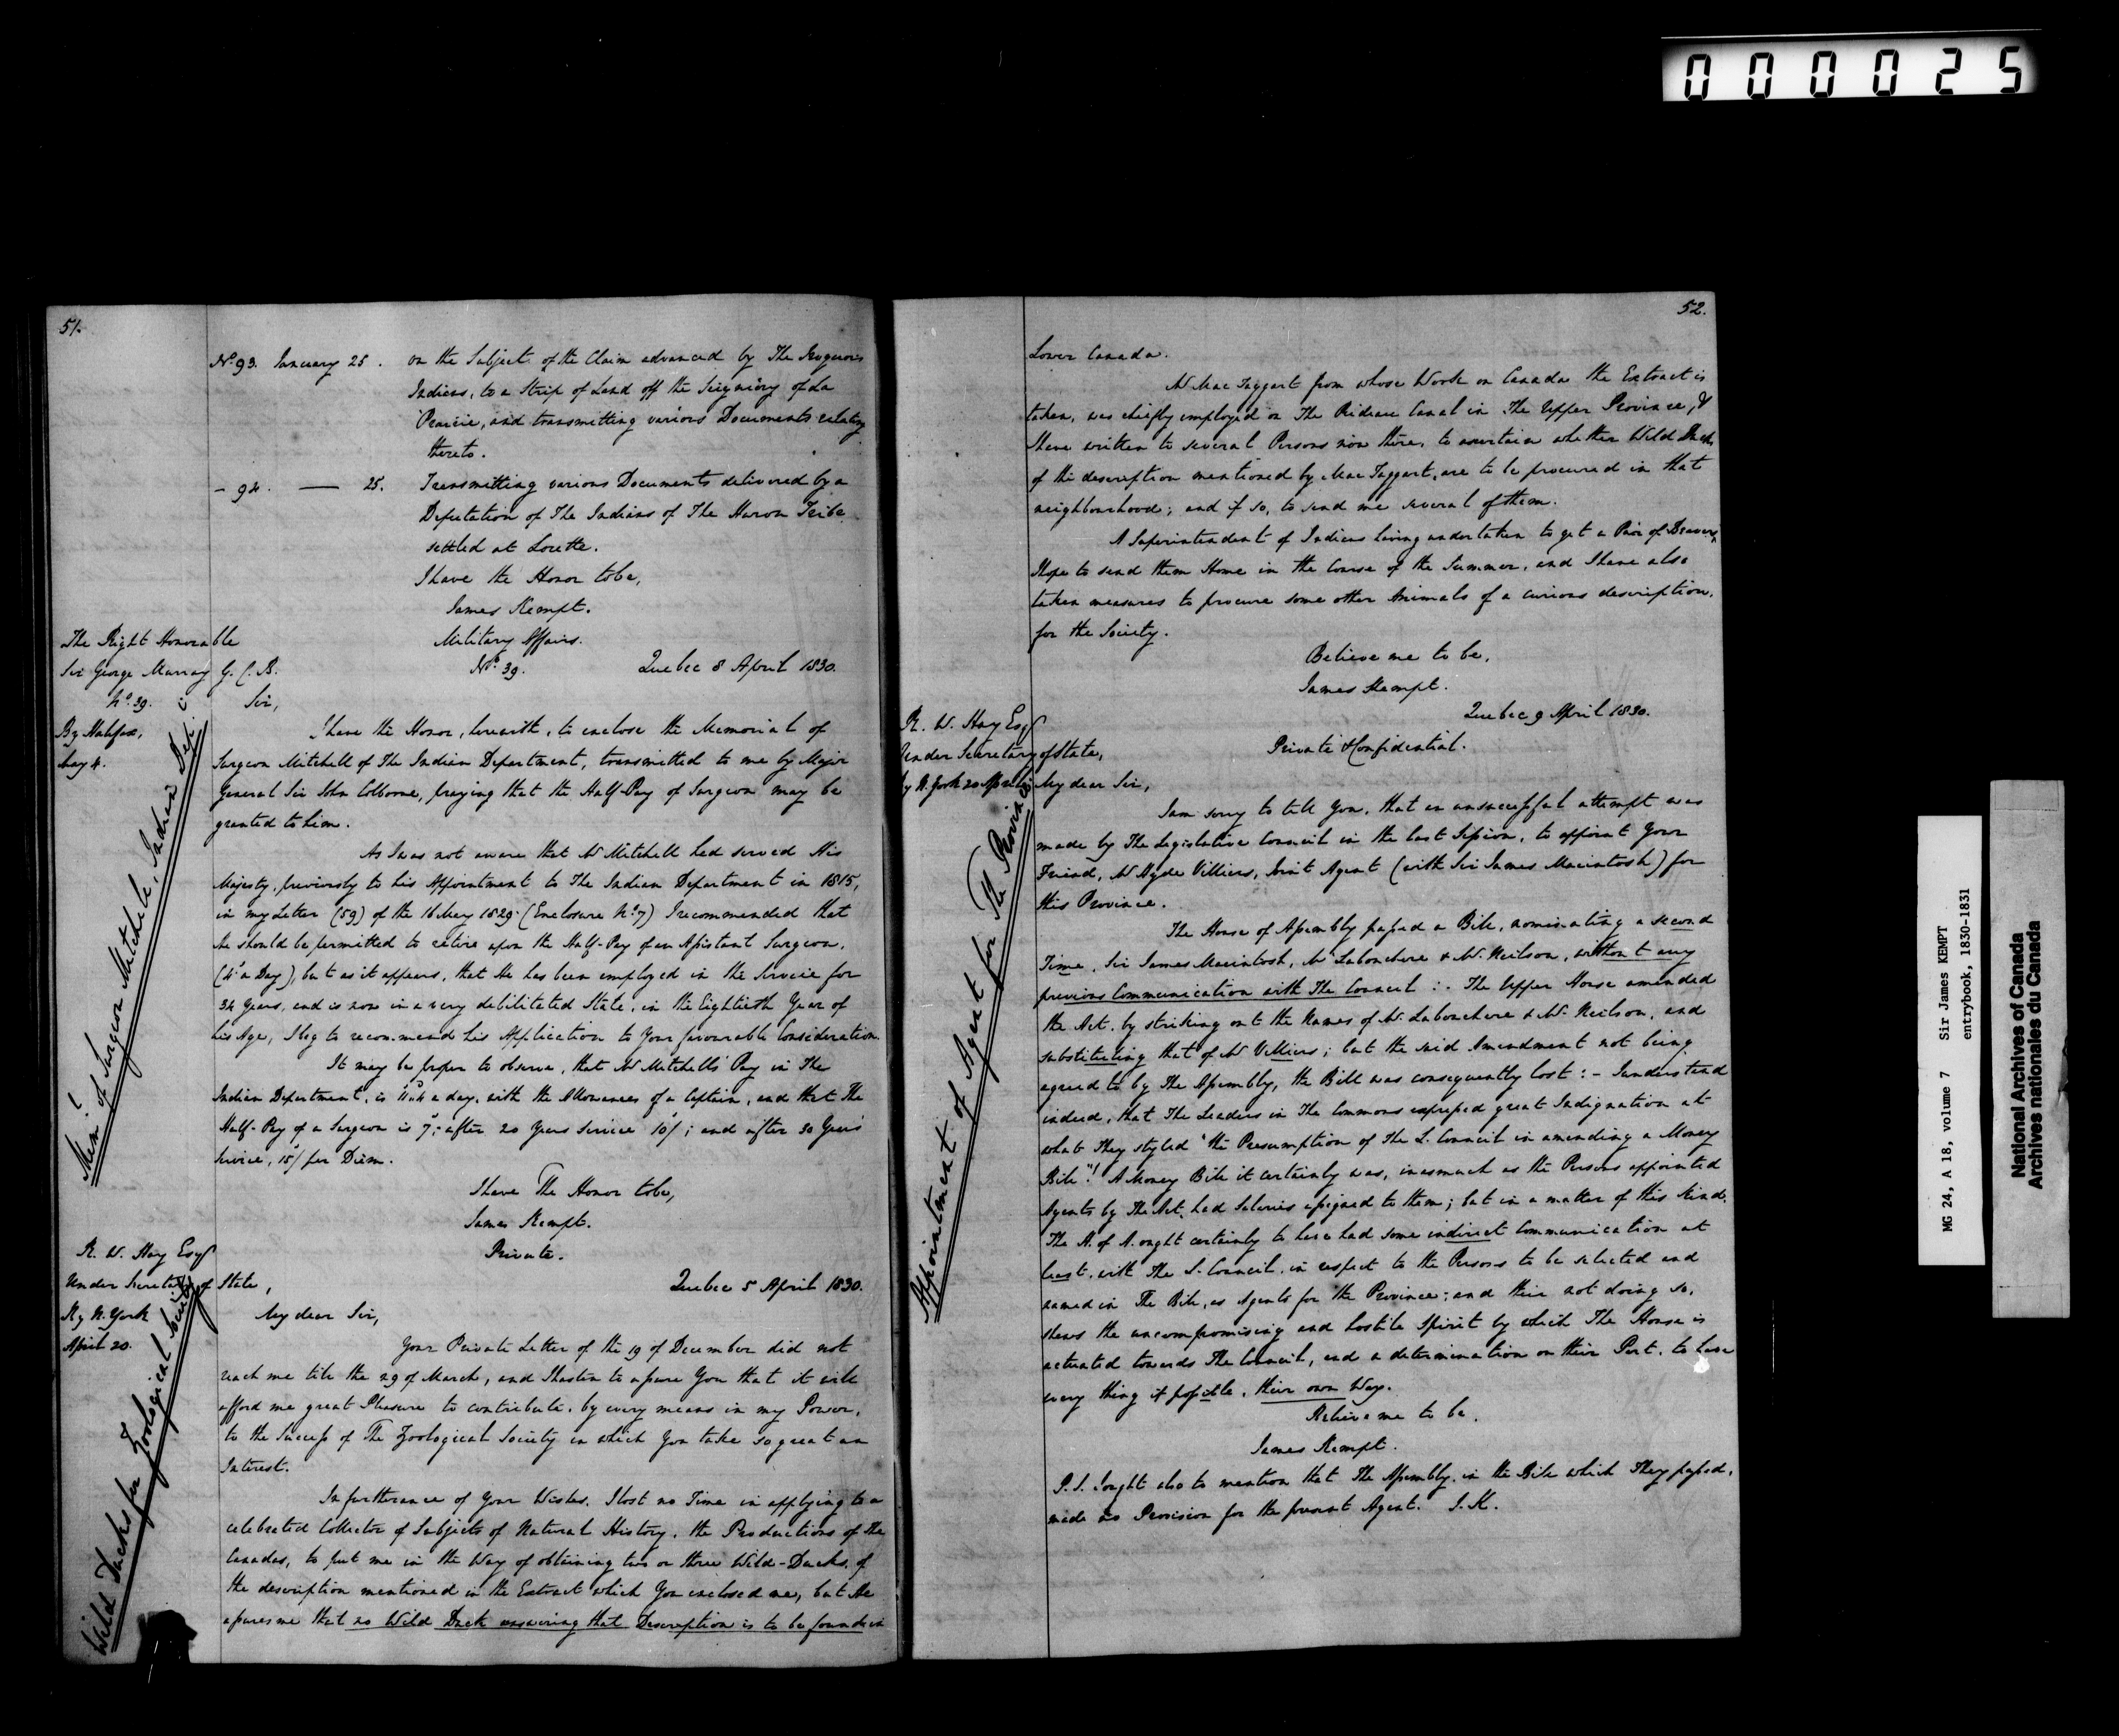 000025
51.
No. 93. January 25. on the Subject of the Claim advanced by The Iroquois
Indians, to a Strip of Land off the Seigniory of La
Prairie, and transmitting various Documents relating
thereto.
- 94. — 25. Transmitting various Documents delivered by a
Deputation of The Indians of The Huron Tribe
settled at Lorette.
I have the Honor to be,
James Kempt.
The Right Honorable
Sir George Murray G.C.B.
No. 39.
By Halifax,
May 4.
Mem'l of Surgeon Mitchell, Indian Dep't
Military Affairs.
No. 39. Quebec 8 April 1830.
Sir,
I have the Honor, herewith, to enclose the Memorial of
Surgeon Mitchell of The Indian Department, transmitted to me by Major
General Sir John Colborne, praying that the Half-Pay of Surgeon may be
granted to him.
As I was not aware that Mr Mitchell had served His
Majesty, previously to his Appointment to The Indian Department in 1815,
in my Letter (59) of the 16 May 1829 (Enclosure No. 7) I recommended that
he should be permitted to retire upon the Half-Pay of an Assistant Surgeon,
(4s a Day), but as it appears, that He has been employed in the Service for
34 Years, and is now in a very debilitated State, in the Eightieth Year of
his Age, I beg to recommend his Application to Your favourable Consideration.
It may be proper to observe, that Mr Mitchell's Pay in The
Indian Department, is a day, with the Allowances of a Captain, and that The
Half-Pay of a Surgeon is 7s; after 20 Years Service 10/; and after 30 Years
Service, 15/ per Diem.
I have The Honor to be,
James Kempt.
R. W. Hay Esqr
Under Secretary of State,
By N. York
April 20.
Wild Ducks for Zoological Society
Private.
Quebec 5 April 1830.
My dear Sir,
Your Private Letter of the 19 of December did not
reach me till the 29 of March, and I hasten to assure You that it will
afford me great Pleasure to contribute, by every means in my Power,
to the Success of The Zoological Society in which You take so great an
Interest.
In furtherance of Your Wishes, I lost no Time in applying to a
celebrated Collector of Subjects of Natural History, the Productions of The
Canadas, to put me in the Way of obtaining two or three Wild-Ducks, of
the description mentioned in the Extract which You enclosed me, but He
assures me that no Wild Duck answering that Description is to be found in
52.
Lower Canada.
Mr Mac Taggart from whose Work on Canada the Extract is
taken, was chiefly employed on The Rideau Canal in The Upper Province, &
I have written to several Persons now there, to ascertain whether Wild Ducks
of the description mentioned by Mac Taggart, are to be procured in that
neighbourhood; and if so, to send me several of them.
A Superintendent of Indians having undertaken to get a Pair of Beavers,
I hope to send them Home in the Course of the Summer, and I have also
taken measures to procure some other Animals of a curious description,
for the Society.
Believe me to be,
James Kempt.
R. W. Hay Esqr
Under Secretary of State,
By N. York 20 April
Appointment of Agent for The Province
Quebec 9 April 1830.
Private & Confidential.
My dear Sir,
I am sorry to tell You, that an unsuccessful attempt was
made by The Legislative Council in the last Session, to appoint Your
Friend, Mr Hyde Villiers, Joint Agent (with Sir James Macintosh) for
this Province.
The House of Assembly passed a Bill, nominating a second
Time, Sir James Macintosh, Mr Labouchere & Mr Neilson, without any
previous Communication with The Council :- The Upper House amended
the Act, by striking out the Names of Mr Labouchere & Mr Neilson, and
substituting that of Mr Villiers; but the said Amendment not being
agreed to by The Assembly, the Bill was consequently lost :- I understand
indeed, that The Leaders in The Commons expressed great Indignation at
what They styled "the Presumption of The L. Council in amending a Money
Bill"! A Money Bill it certainly was, inasmuch as the Persons appointed
Agents by The Act, had Salaries assigned to them; but in a matter of this kind,
The H. of A. ought certainly to have had some indirect Communication at
least, with The L. Council, in respect to the Persons to be selected and
named in The Bill, as Agents for the Province; and their not doing so,
shews the uncompromising and hostile Spirit by which The House is
actuated towards The Council, and a determination on their Part, to have
every thing if possible, their own Way.
Believe me to be,
James Kempt.
P.S. I ought also to mention that The Assembly, in the Bill which They passed,
made no Provision for the present Agent. J.K.
MG 24, A 18, volume 7 Sir James KEMPT
entrybook, 1830-1831
National Archives of Canada
Archives nationales du Canada